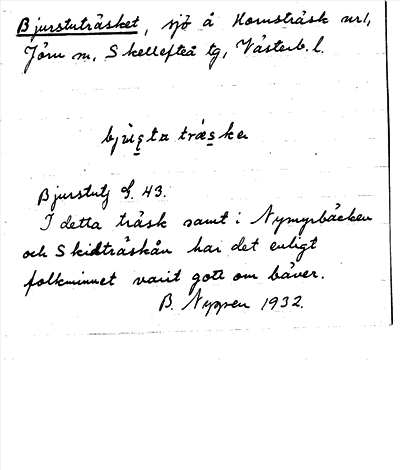 Bjurstuträsket, sjö å Hornsträsk nr 1,
Jörn sn, Skellefteå tg, Västerb. l.
träskə
Bjurstutj S. 43.
I detta träsk samt i Nymyrbäcken
och Skidträskån har det enligt
folkminnet varit gott om bäver.
B. Nygren 1932.